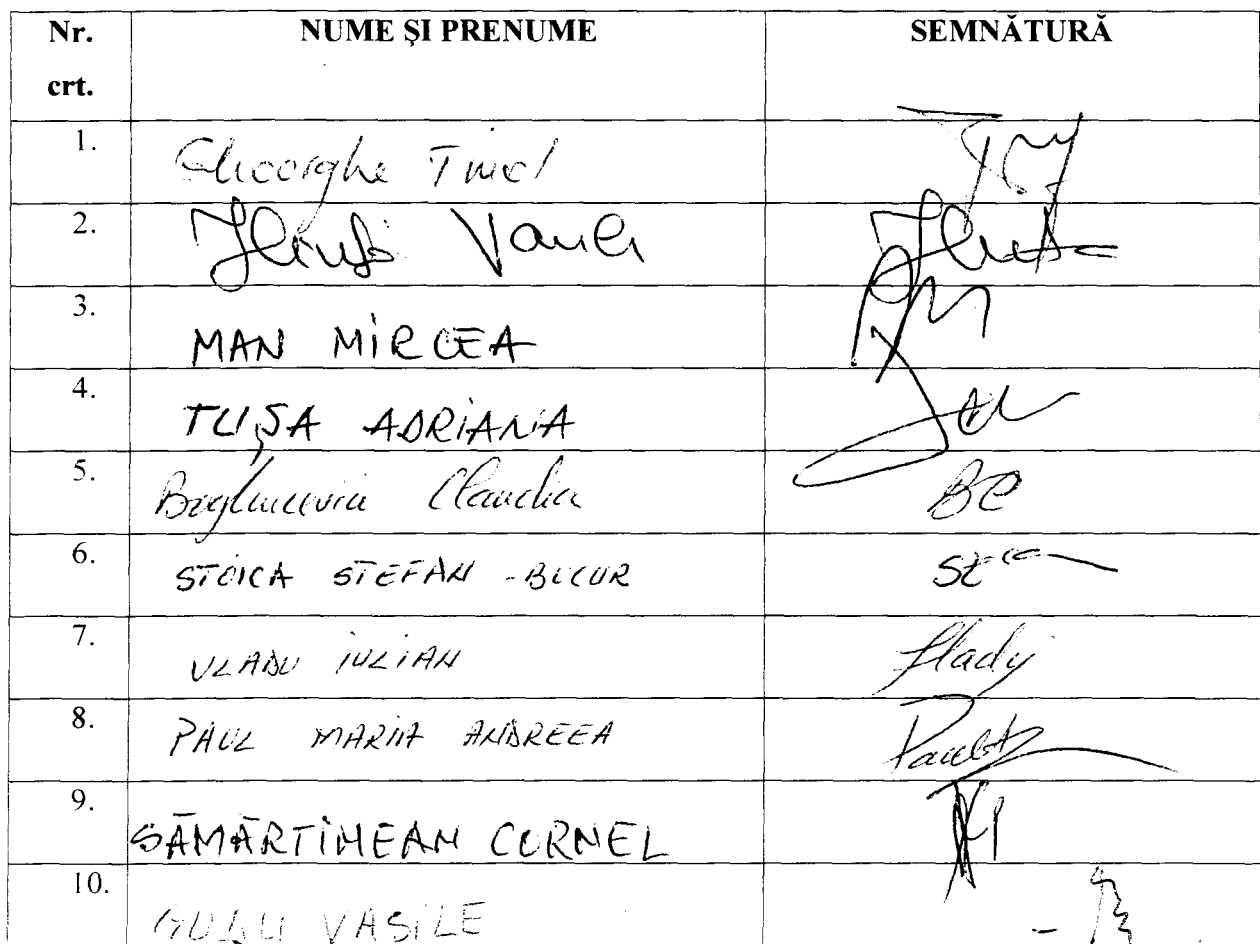 Nr. crt. NUME ȘI PRENUME SEMNĂTURĂ
1. Gheorghe Tinel
2. Ilinca Vasile
3. MAN MIRCEA
4. TUȘA ADRIANA
5. Claudia BC
6. STOICA STEFAN - BUCUR
7. VLADU IULIAN
8. PAUL MARIA ANDREEA
9. SĂMĂRTINEAN CORNEL
10. VASILE